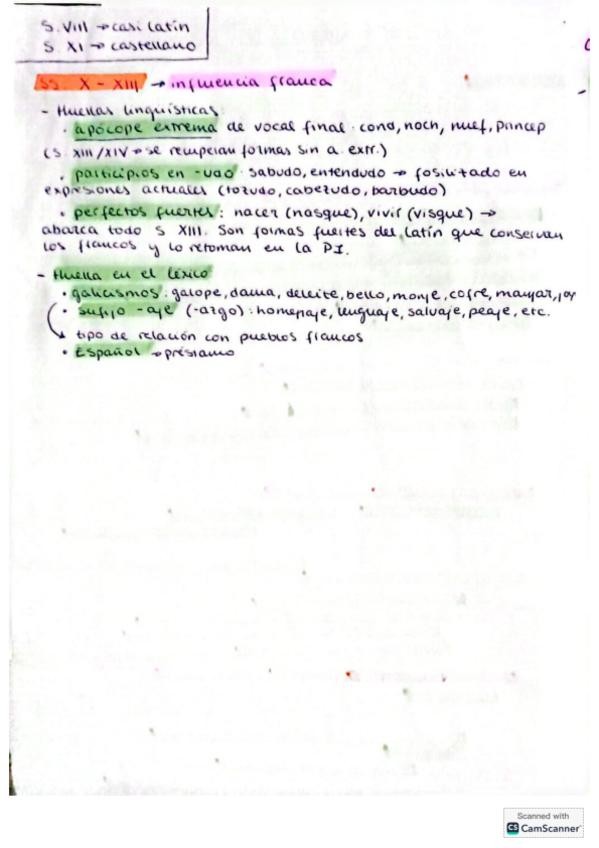 S. VIII → casi latín
S. XI → castellano
SS. X - XIII → influencia franca
- Huellas lingüísticas:
• apócope extrema de vocal final: cond, noch, nuef, princep
(S. XIII/XIV → se recuperan formas sin a extr.)
• participios en -udo: sabudo, entendudo → fosilizado en
expresiones actuales (tozudo, cabezudo, barbudo)
• perfectos fuertes: nacer (nasque), vivir (visque) →
abarca todo S XIII. Son formas fuertes del latín que conservan
los francos y lo retoman en la P.I.
- Huella en el léxico
• galicismos: galope, dama, deleite, bello, monje, cofre, manjar,
• sufijo -aje (-argo): homenaje, lenguaje, salvaje, peaje, etc.
→ tipo de relación con pueblos francos
• Español → préstamo
Scanned with
CS CamScanner